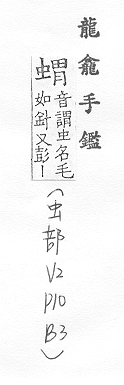 龍龕手鑑
蝟
音謂虫名毛
如針又彭丨
(虫部 V2 P10 B3)